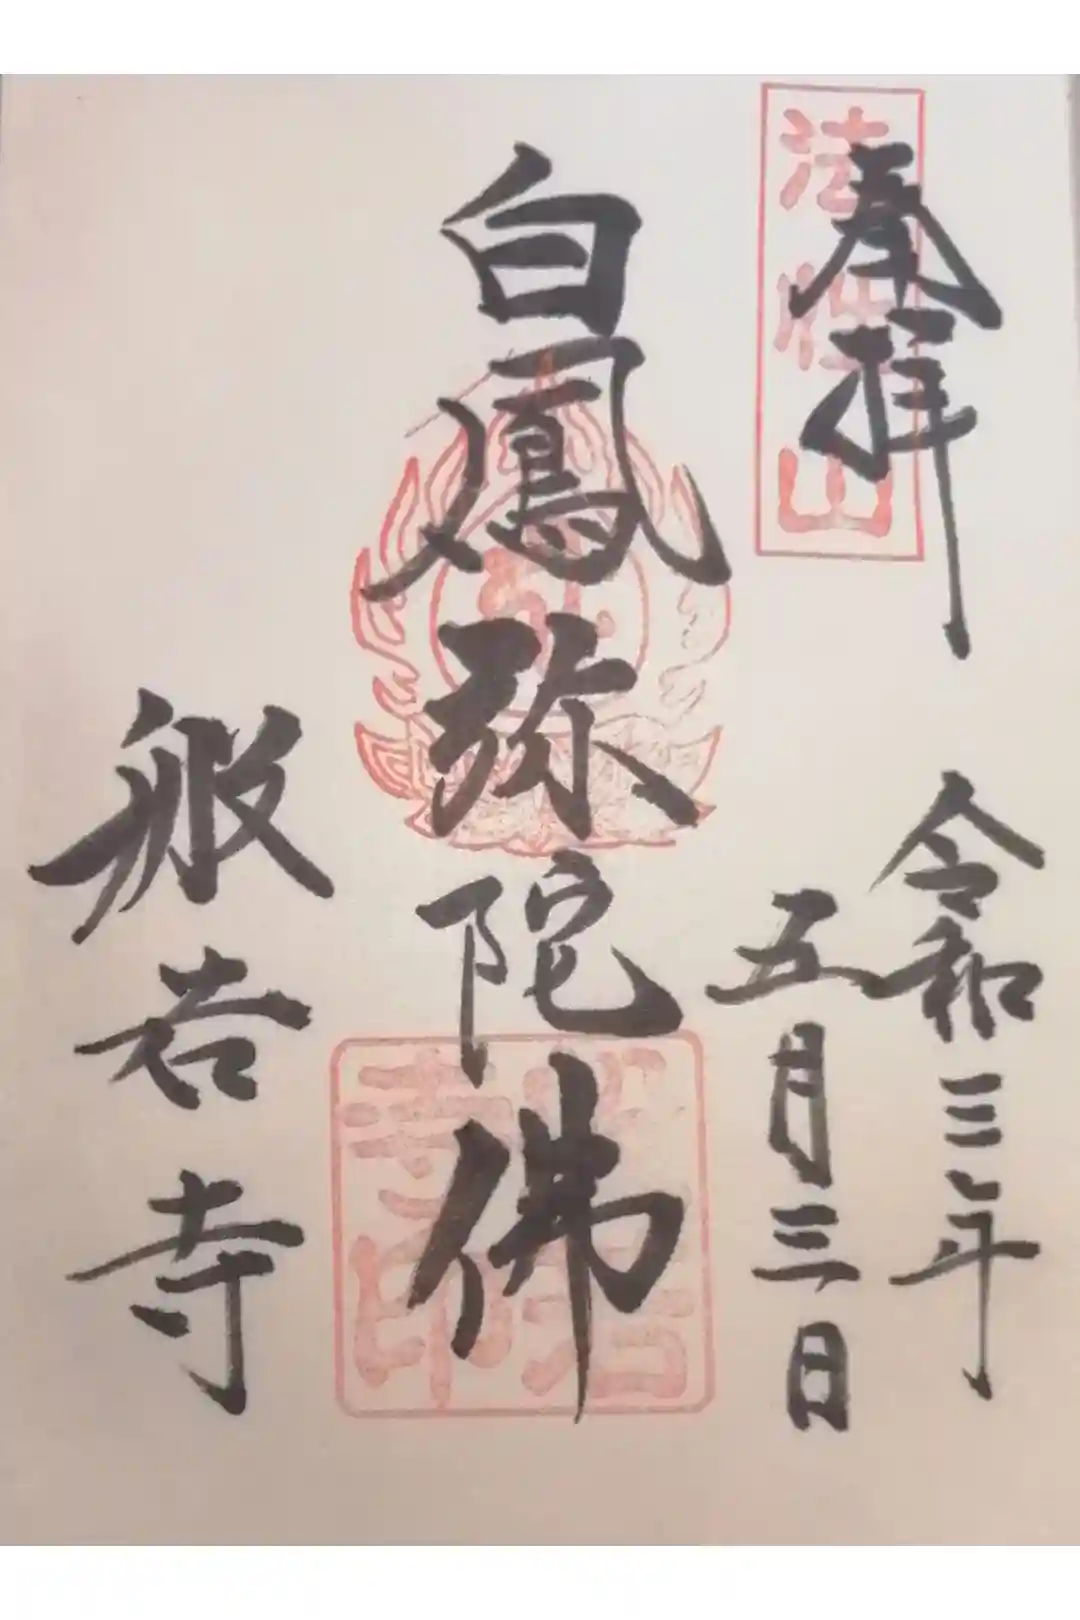 奉拝
法性山
令和三年
五月三日
白鳳弥陀佛
般若寺
般若寺印